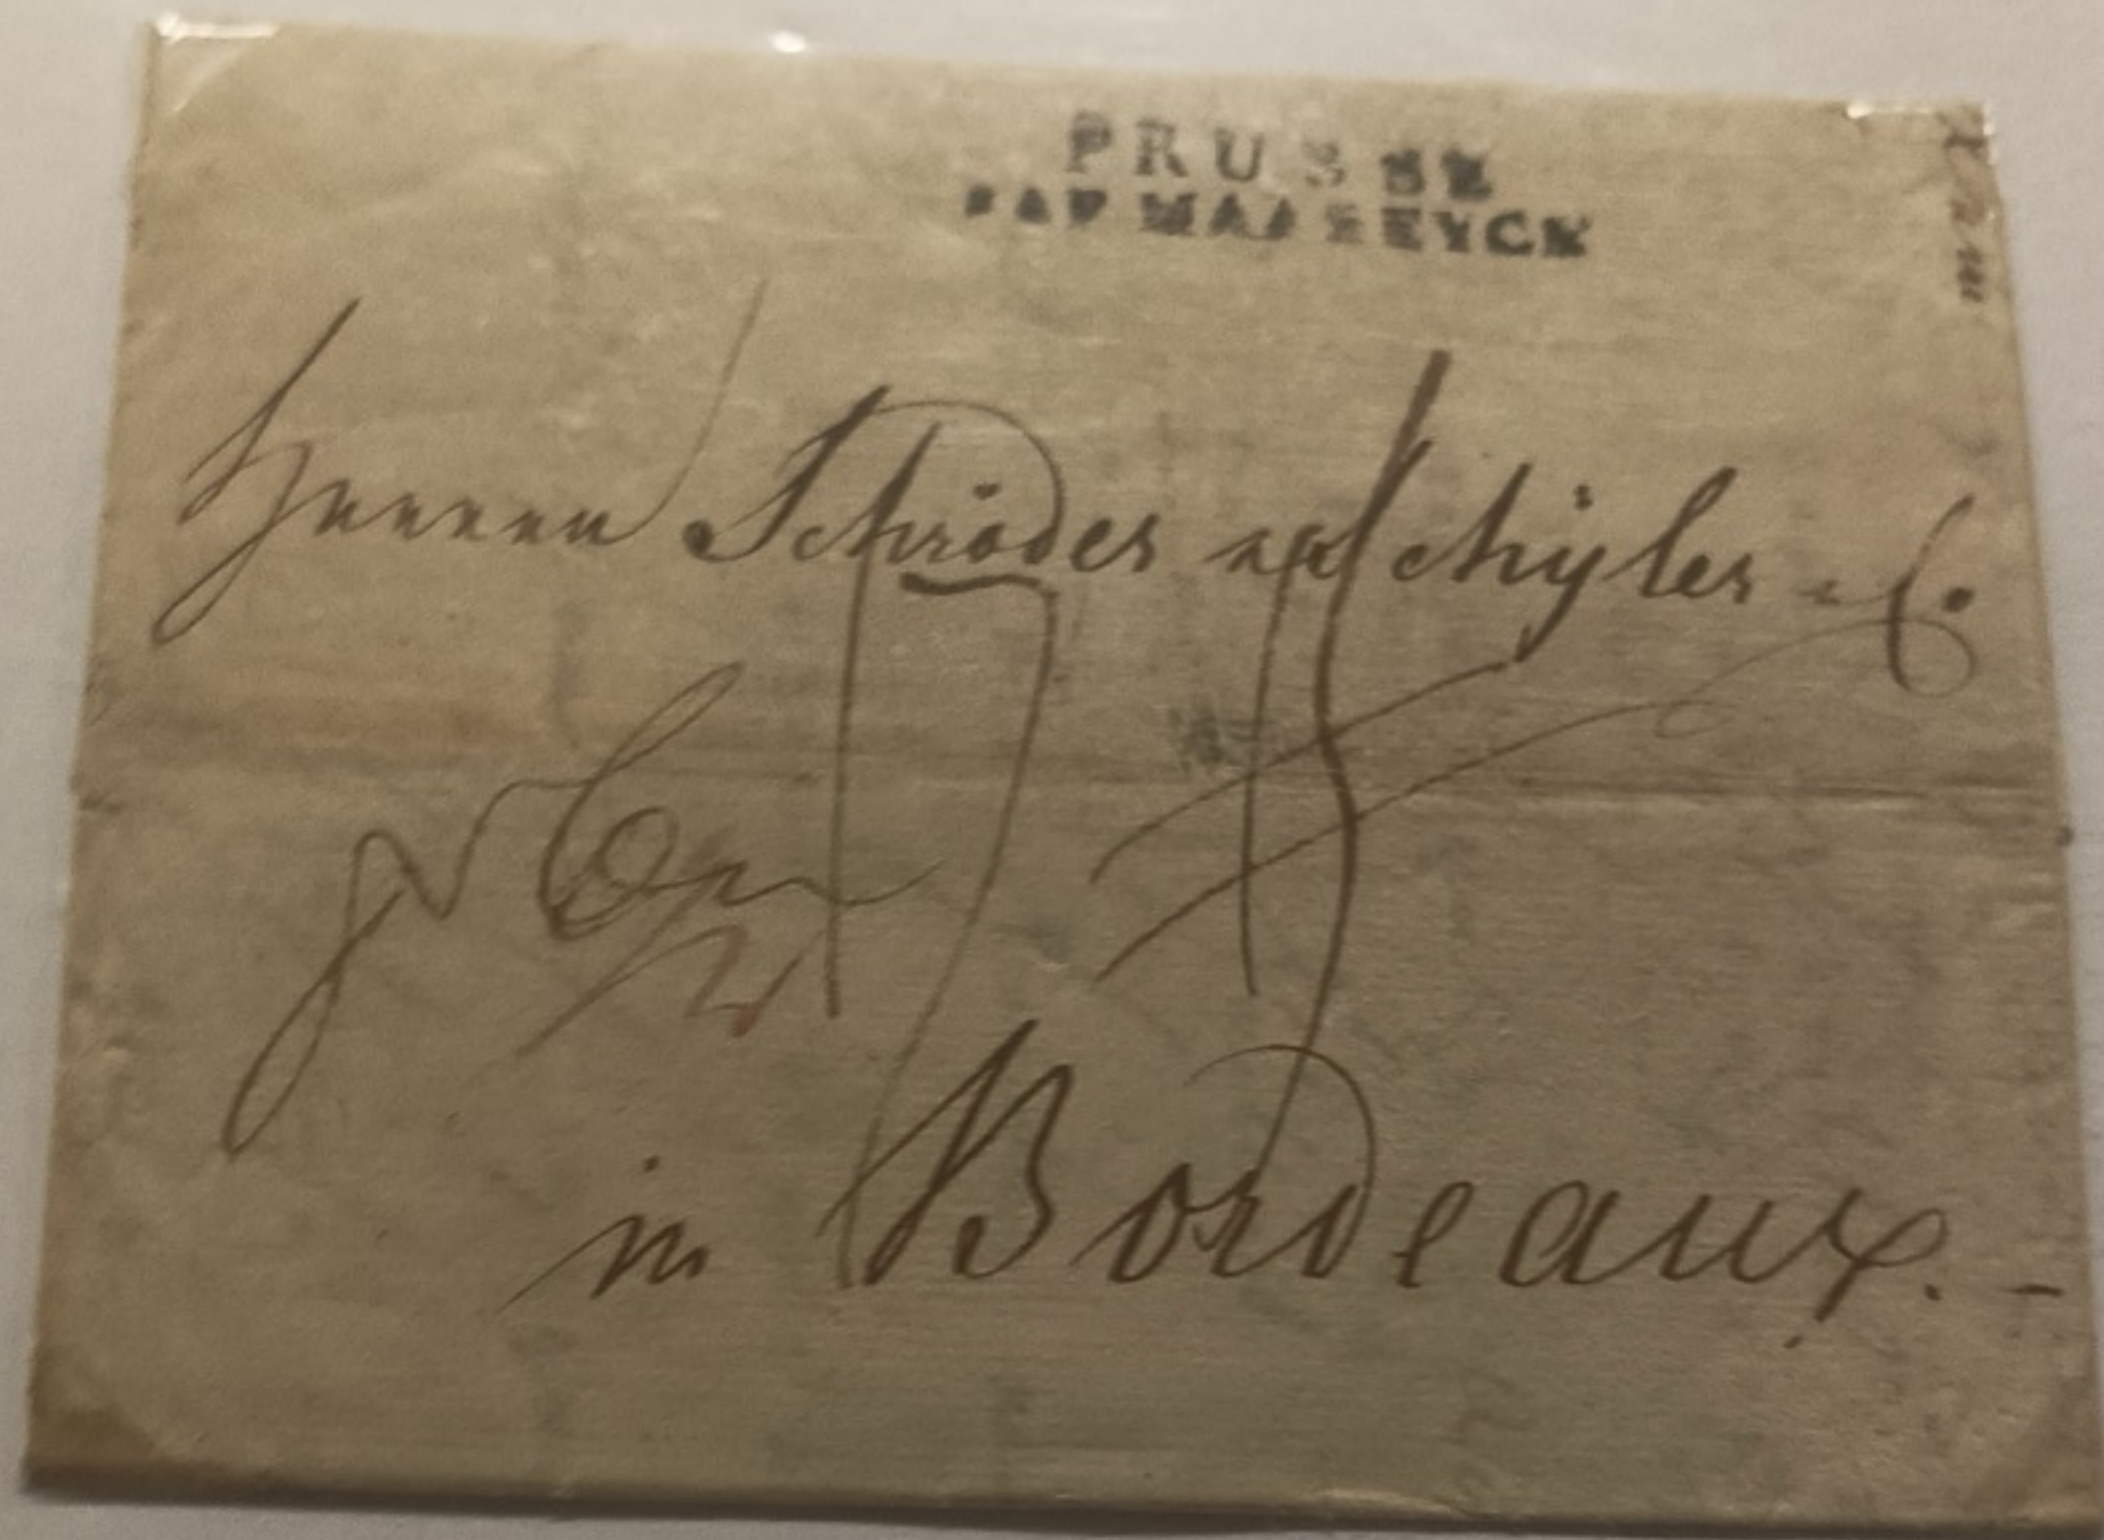 PRUSSE
PAR MAASEYCK
Herren Schröder & Schÿler & C.
in Bordeaux. -